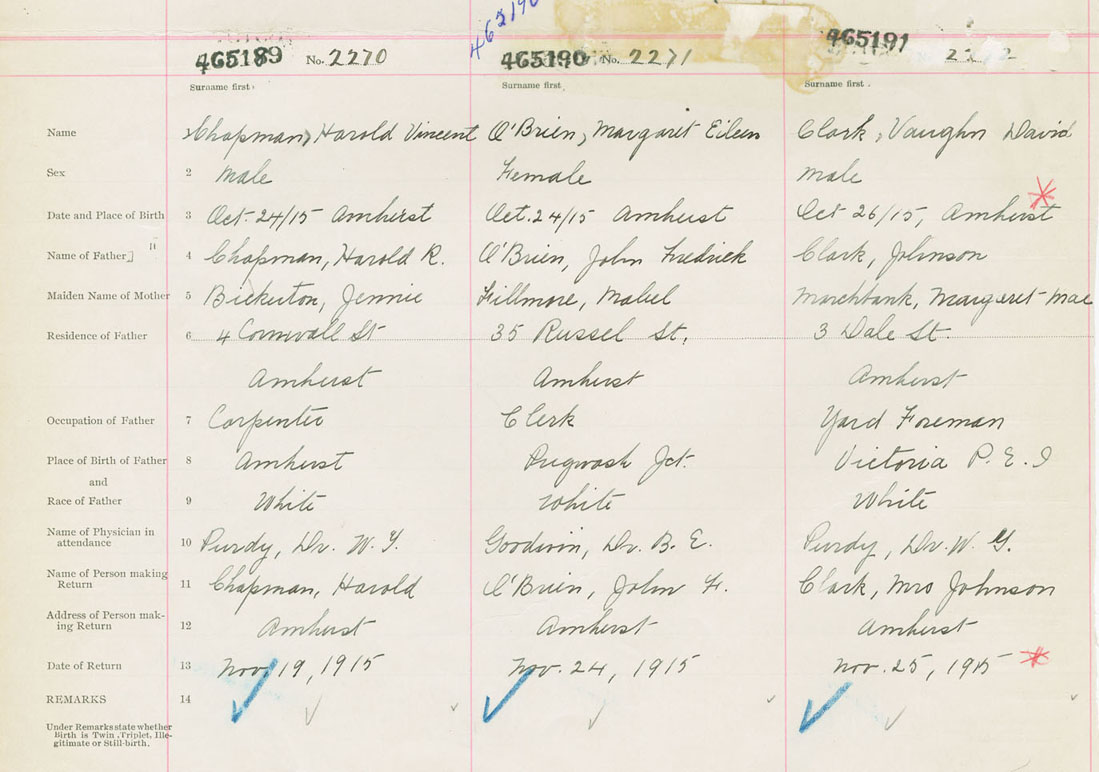 462190
465189 No. 2270 465190 No. 2271 465191
Surname first Surname first Surname first
Name Chapman, Harold Vincent O'Brien, Margaret Eileen Clark, Vaughn David
Sex 2 Male Female Male
Date and Place of Birth 3 Oct. 24/15 Amherst Oct. 24/15 Amherst Oct 26/15, Amherst
Name of Father 4 Chapman, Harold R. O'Brien, John Fredrick Clark, Johnson
Maiden Name of Mother 5 Bickerton, Jennie Fillmore, Mabel Marchbank, Margaret Mae
Residence of Father 6 4 Cornwall St 35 Russel St, 3 Dale St.
Amherst Amherst Amherst
Occupation of Father 7 Carpenter Clerk Yard Foreman
Place of Birth of Father 8 Amherst Pugwash Jct. Victoria P. E. I
and
Race of Father 9 White White White
Name of Physician in
attendance 10 Purdy, Dr. W. Y. Goodwin, Dr. B. E. Purdy, Dr. W. G.
Name of Person making
Return 11 Chapman, Harold O'Brien, John F. Clark, Mrs Johnson
Address of Person mak-
ing Return 12 Amherst Amherst Amherst
Date of Return 13 Nov. 19, 1915 Nov. 24, 1915 Nov. 25, 1915
REMARKS 14
Under Remarks state whether
Birth is Twin, Triplet, Ille-
gitimate or Still-birth.